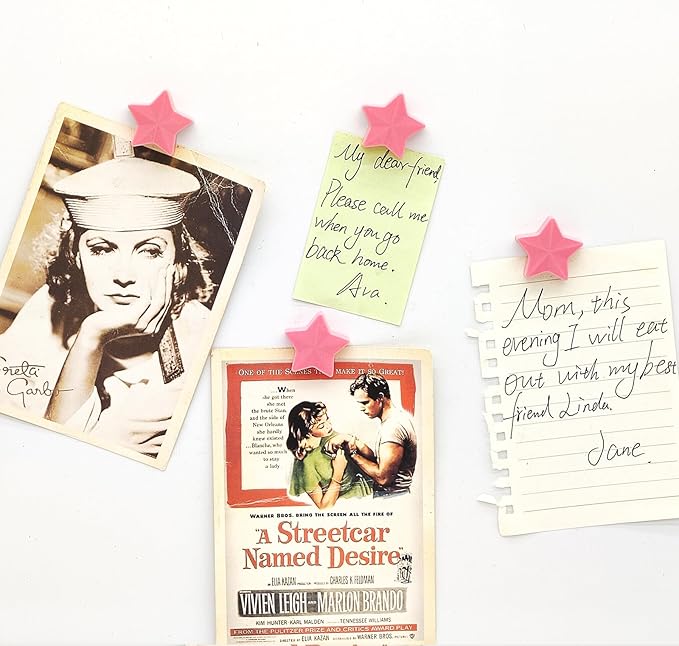 Greta
Garbo
My dear friend,
Please call me
when you go
back home.
Ava.
Mom, this
evening I will eat
out with my best
friend Linda.
Jane.
ONE OF THE SCENES THAT MAKE IT SO GREAT!
When
she got there
she met
the brute Stan
and the side of
New Orleans
she hardly
knew existed
...Blanche, who
wanted so much
to stay
a lady
WARNER BROS. BRING THE SCREEN ALL THE FIRE OF
"A STREETCAR
NAMED DESIRE"
ELIA KAZAN PRODUCTION PRODUCED BY CHARLES K. FELDMAN
VIVIEN LEIGH AND MARLON BRANDO
KIM HUNTER · KARL MALDEN TENNESSEE WILLIAMS
FROM THE PULITZER PRIZE AND CRITICS AWARD PLAY
DIRECTED BY ELIA KAZAN DISTRIBUTED BY WARNER BROS.